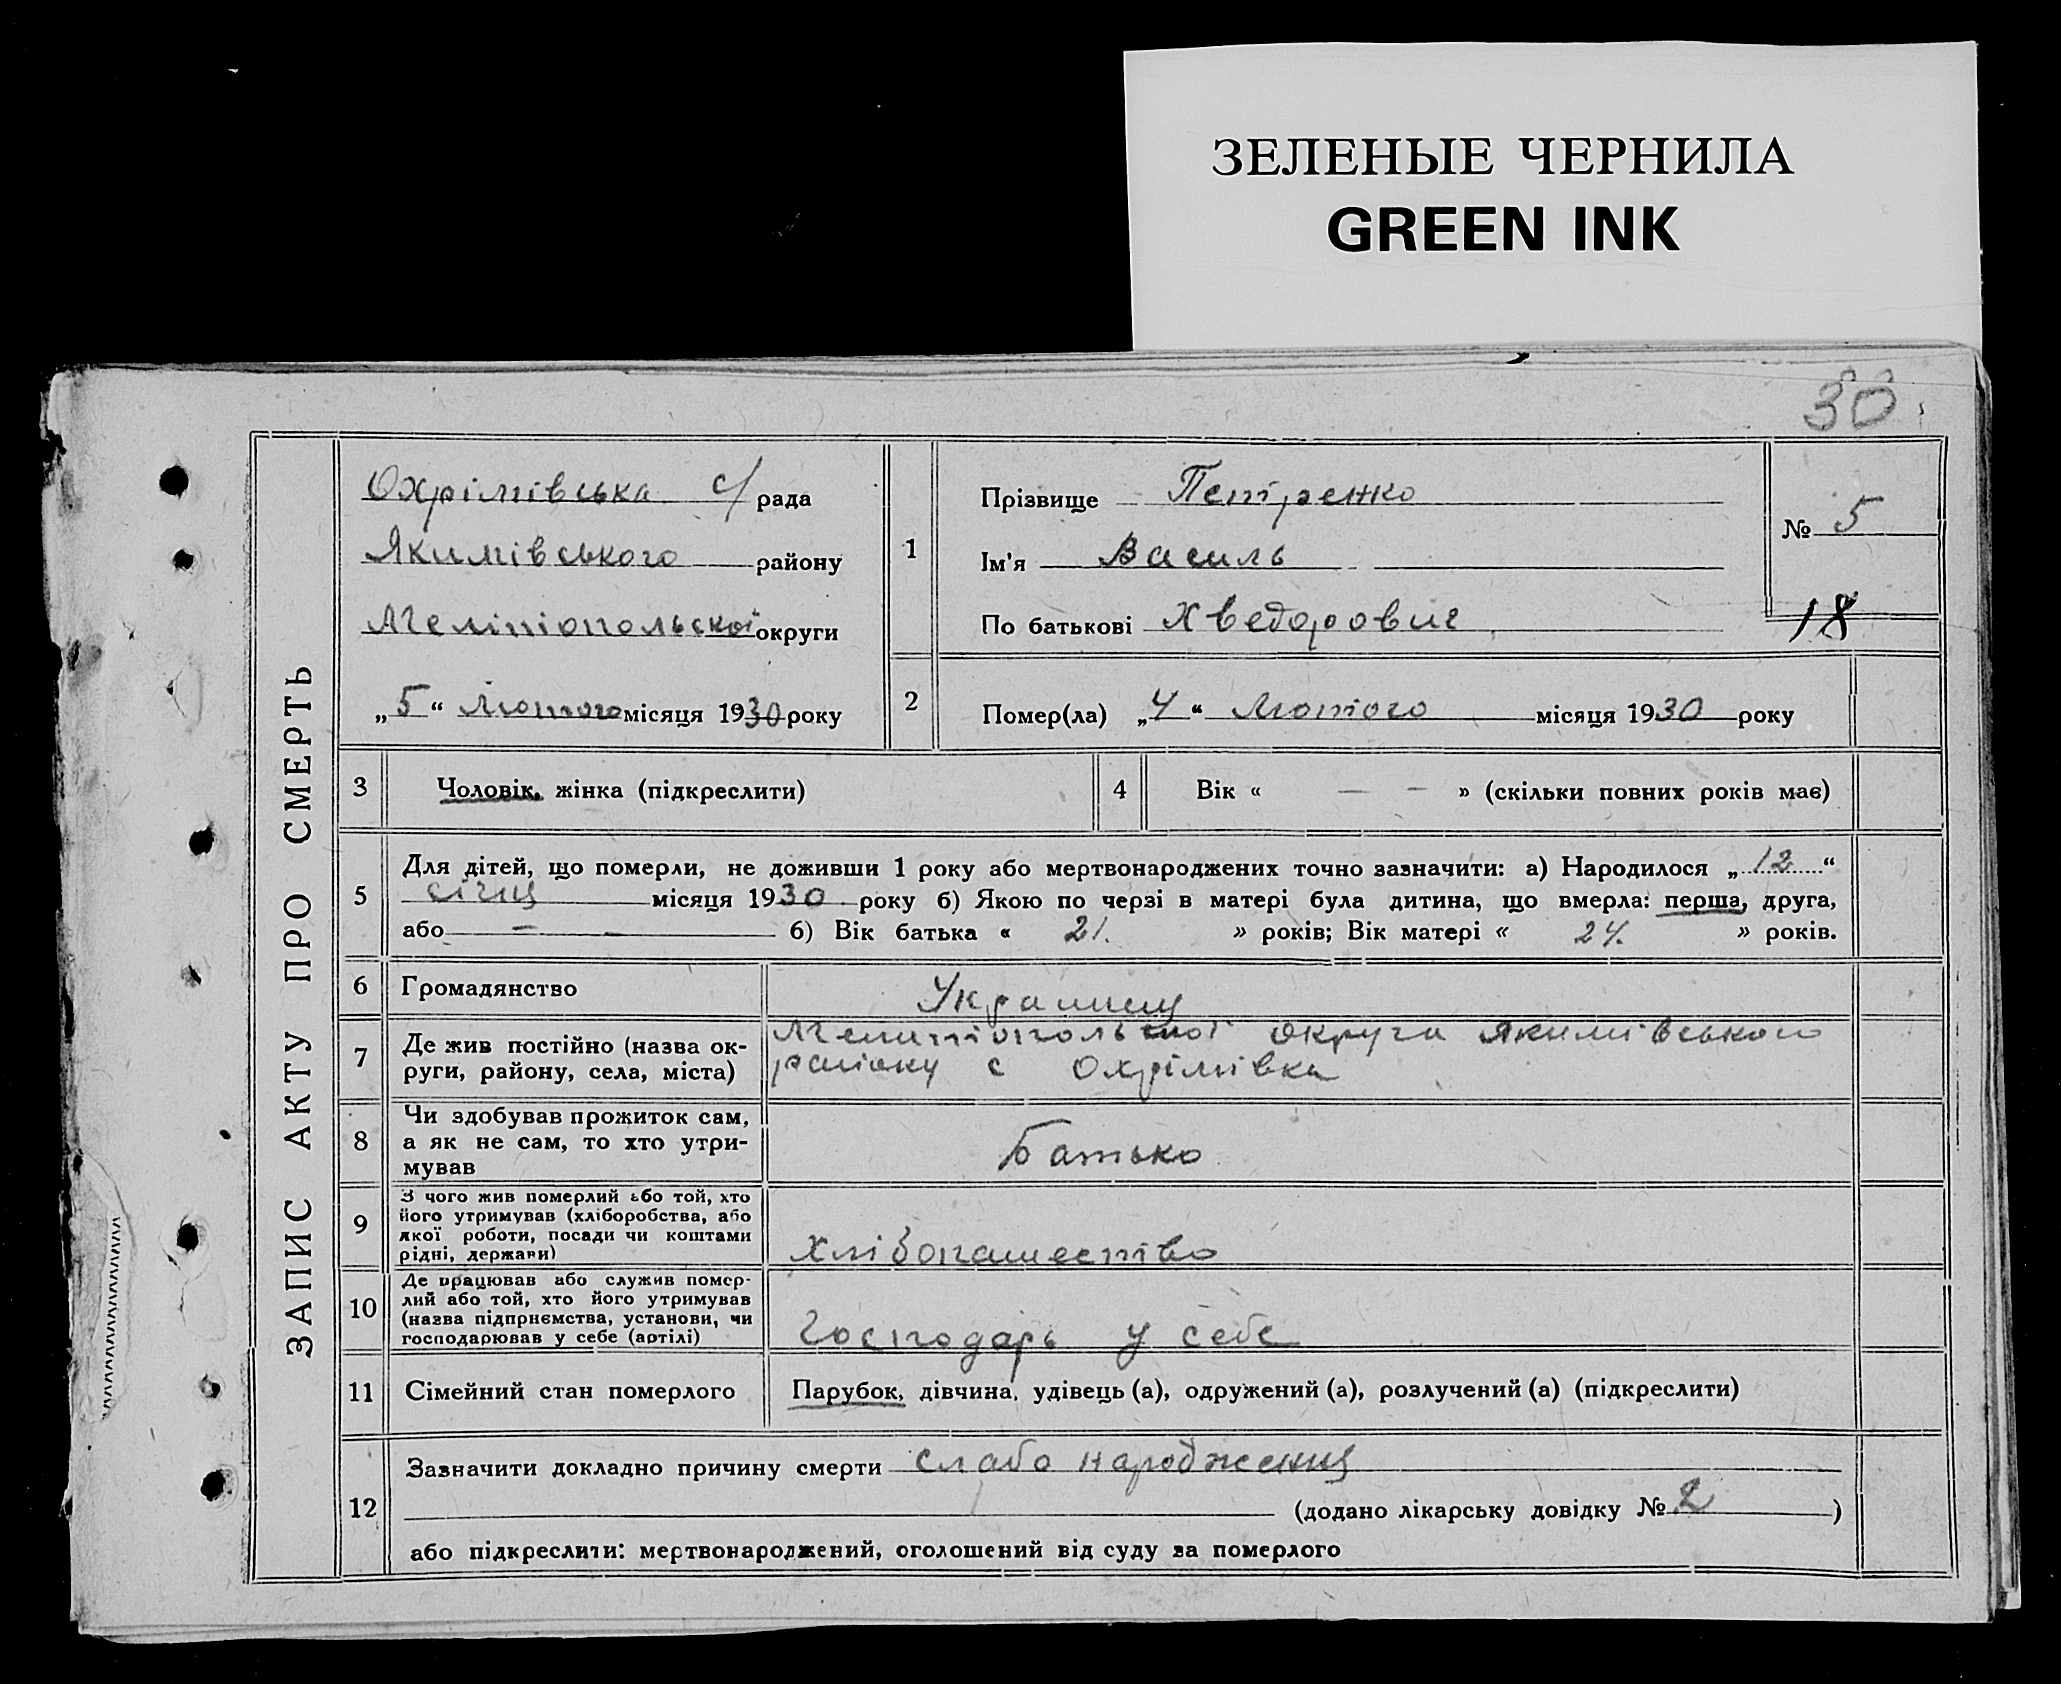 ЗЕЛЕНЫЕ ЧЕРНИЛА
GREEN INK
30
ЗАПИС АКТУ ПРО СМЕРТЬ
Охрімівська с/рада
Якимівського району
Мелітопольскої округи
„5“ Лютого місяця 1930 року
1
Прізвище Петренко
Ім'я Василь
По батькові Хведорович
№ 5
18
2
Помер(ла) „4“ Лютого місяця 1930 року
3
Чоловік, жінка (підкреслити)
4
Вік « — — » (скільки повних років має)
5
Для дітей, що померли, не доживши 1 року або мертвонароджених точно зазначити: а) Народилося „12“
січня місяця 1930 року б) Якою по черзі в матері була дитина, що вмерла: перша, друга,
або — — б) Вік батька « 21. » років; Вік матері « 24. » років.
6
Громадянство
7
Де жив постійно (назва ок-
руги, району, села, міста)
округи Якимівського
району с Охрімівка
8
Чи здобував прожиток сам,
а як не сам, то хто утри-
мував
Батько
9
З чого жив померлий або той, хто
його утримував (хліборобства, або
якої роботи, посади чи коштами
рідні, держави)
Хлібопашество
10
Де працював або служив помер-
лий або той, хто його утримував
(назва підприємства, установи, чи
господарював у себе (артілі)
Господарь у себе
11
Сімейний стан померлого
Парубок, дівчина, удівець (а), одружений (а), розлучений (а) (підкреслити)
12
Зазначити докладно причину смерти слабо народження
(додано лікарську довідку № 2 )
або підкреслити: мертвонароджений, оголошений від суду за померлого